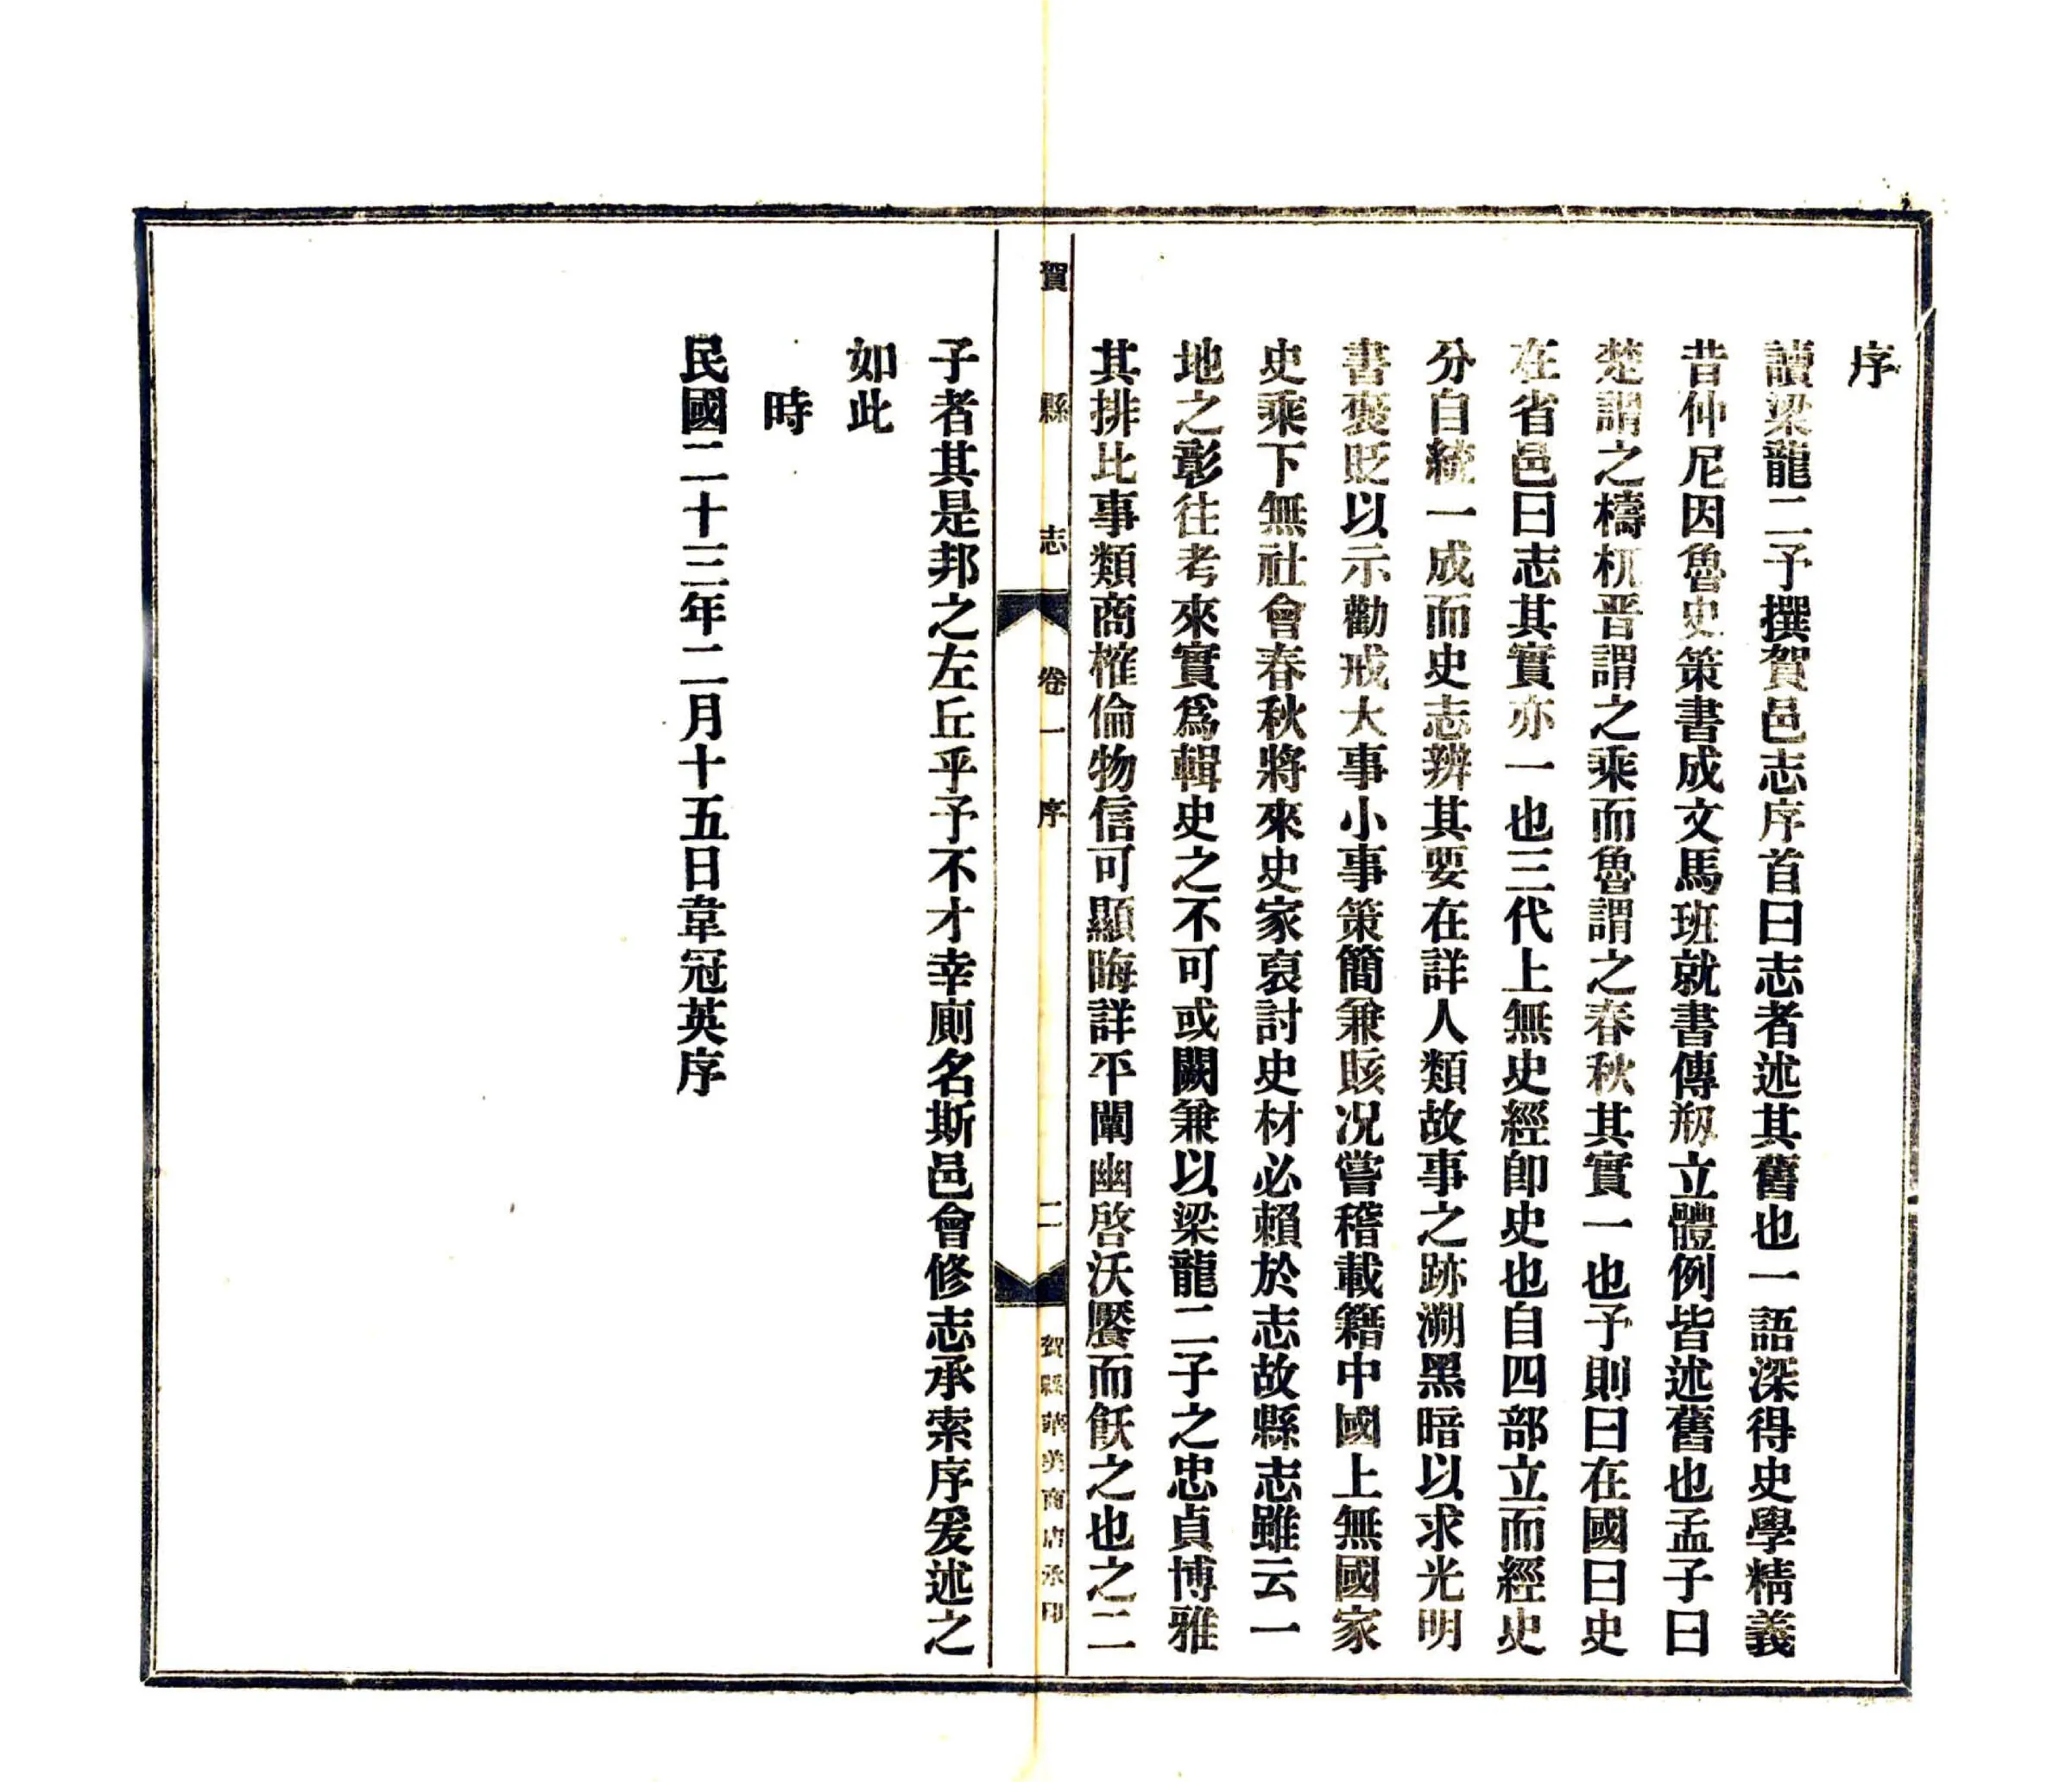 序
讀梁龍二子撰賀邑志序首曰志者述其舊也一語深得史學精義
昔仲尼因魯史策書成文馬班就書傳剏立體例皆述舊也孟子曰
楚謂之檮杌晋謂之乘而魯謂之春秋其實一也予則曰在國曰史
在省邑曰志其實亦一也三代上無史經卽史也自四部立而經史
分自統一成而史志辨其要在詳人類故事之跡溯黑暗以求光明
書褒貶以示勸戒大事小事策簡兼賅况嘗稽載籍中國上無國家
史乘下無社會春秋將來史家裒討史材必賴於志故縣志雖云一
地之彰往考來實爲輯史之不可或闕兼以梁龍二子之忠貞博雅
其排比事類商榷倫物信可顯晦詳平闡幽啓沃饜而飫之也之二
賀縣志 卷一 序 二 賀縣華美商店承印
子者其是邦之左丘乎予不才幸廁名斯邑會修志承索序爰述之
如此
時
民國二十三年二月十五日韋冠英序